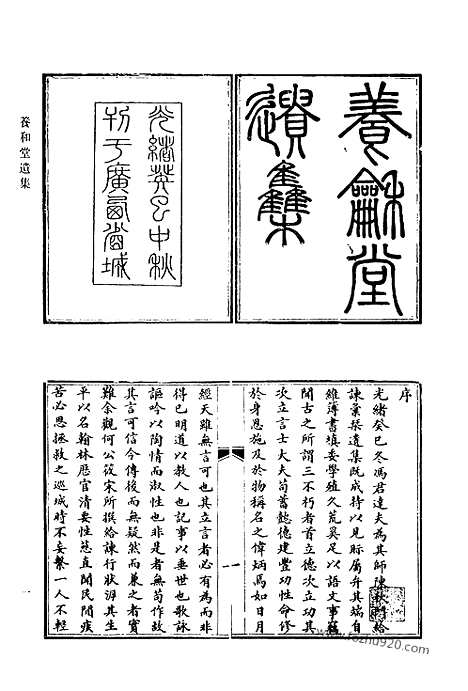 養和堂遺集
養龢堂
遺集
光緒癸巳中秋
刊于廣西省城
序
光緒癸巳冬馮君達夫為其師陳秋門給
諫彙槧遺集既成持以見眎屬弁其端自
維簿書填委學殖久荒奚足以語文事竊
聞古之所謂三不朽者首立德次立功其
次立言士大夫苟蓄懿德建豐功性命修
於身恩施及於物稱名之偉炳焉如日月
經天雖無言可也其立言者必有為而非
得已明道以救人也記事以垂世也歌詠
謳吟以陶情而淑性也非是者無苟作故
其言可信今傳後而無疑然而兼之者實
難余觀何公筱宋所撰給諫行狀洎其生
平以名翰林歷官清要性慈直聞民間疾
苦必思拯救之巡城時不妄繫一人不輕
一
一
www.fozhu920.com